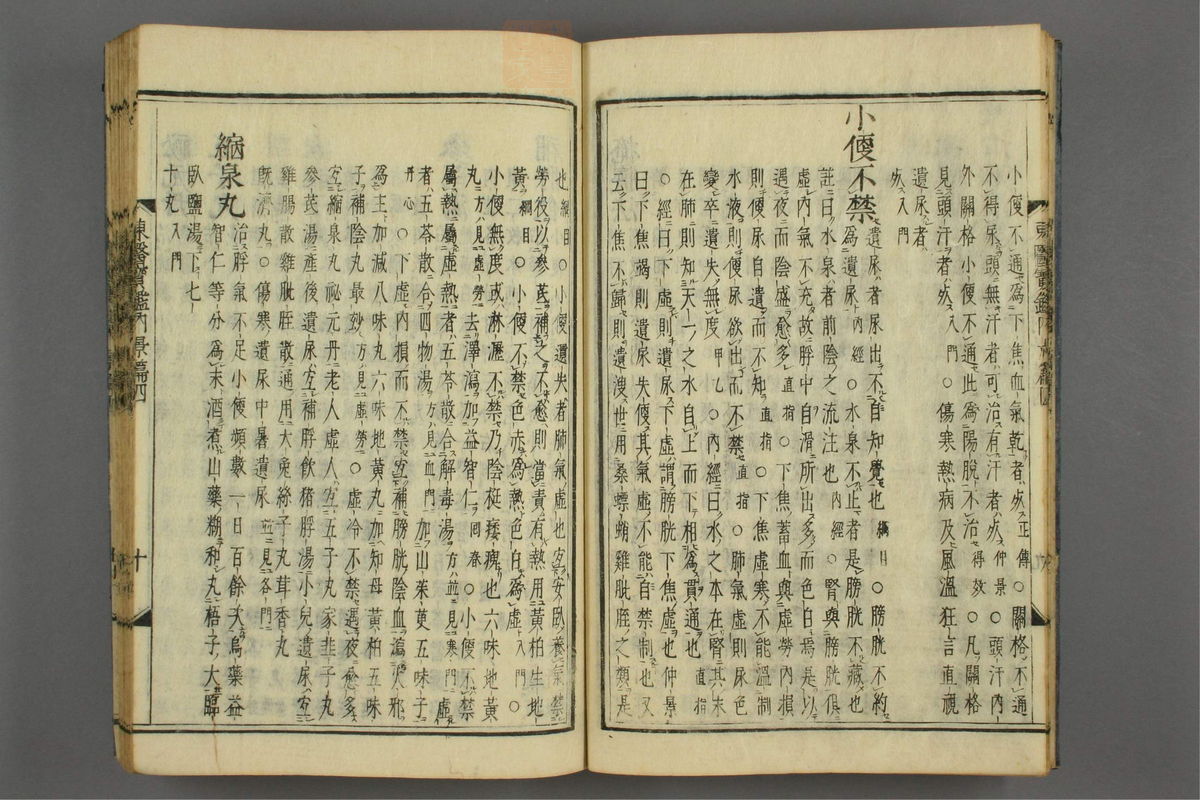 小便不通爲下焦血氣乾者死正傳○關格不通
不得尿頭無汗者可治有汗者死仲景○頭汗内
外關格小便不通此爲陽脫不治得效○凡關格
見頭汗者死入門○傷寒熱病及風溫狂言直視
遺尿者
死入門
小便不禁遺尿者尿出不自知覺也綱目○膀胱不約
爲遺尿内經○水泉不止者是膀胱不藏也
註曰水泉者前陰之流注也内經○腎與膀胱俱
虛内氣不充故脬中自滑所出多而色白焉是以
遇夜而陰盛愈多直指○下焦蓄血與虛勞内損
則便尿自遺而不知直指○下焦虛寒不能溫制
水液則便尿欲出而不禁直指○肺氣虛則尿色
變卒遺失無度甲乙○内經曰水之本在腎其末
在肺則知天一之水自上而下相爲貫通也直指
○經曰下虛則遺尿下虛謂膀胱下焦虛也仲景
曰下焦竭則遺尿失便其氣虛不能自禁制也又
云下焦不歸則遺溲世用桑螵蛸雞肶胵之類是
也綱目○小便遺失者肺氣虛也宜安臥養氣禁
勞役以參芪補之不愈則當責有熱用黃柏生地
黃綱目○小便不禁色赤爲熱色白爲虛入門○
小便無度或淋瀝不禁乃陰挺痿痺也六味地黃
丸方見虛勞去澤瀉加益智仁回春○小便不禁
屬熱屬虛熱者五苓散合解毒湯方並見寒門虛
者五苓散合四物湯方見血門加山茱萸五味子
丹心○下虛内損而不禁宜補膀胱陰血瀉火邪
爲主加減八味丸六味地黃丸加知母黃柏五味
子補陰丸最玅方見虛勞○虛冷不禁遇夜愈多
宜縮泉丸祕元丹老人虛人宜五子丸家韭子丸
參芪湯產後遺尿宜補脬飲猪脬湯小兒遺尿宜
雞腸散雞肶胵散通用大兎絲子丸茸香丸
旣濟丸○傷寒遺尿中暑遺尿並見各門
縮泉丸治脬氣不足小便頻數一日百餘次烏藥益
智仁等分爲末酒煮山藥糊和丸梧子大臨
臥鹽湯下七
十丸入門
東醫寶鑑内景篇四
十